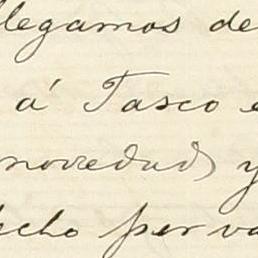 llegamos de
á Tasco e
novedad y
echo per va